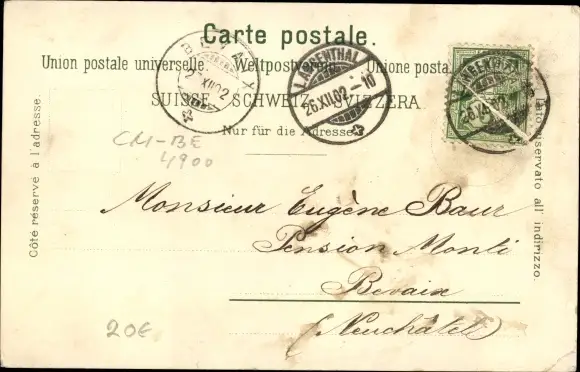 Carte postale.
Union postale universelle. Weltpostverein. Unione posta
SUISSE. SCHWEIZ. SVIZZERA.
Nur für die Adresse.
LANGENTHAL
26.XII.02.-10
CH-BE
4900
Côté réservé à l'adresse.
riservato all' indirizzo.
Monsieur Eugène Baur
Pension Monti
Bevaix
(Neuchâtel)
20€